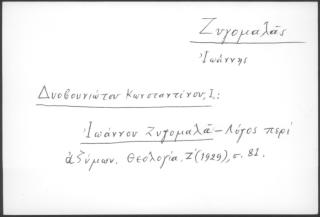 Ζυγομαλᾶς
Ἰωάννης
Δυοβουνιώτου Κωνσταντίνου, Ι.:
Ἰωάννου Ζυγομαλᾶ – Λόγος περί
ἀζύμων. Θεολογία, Ζ' (1929), σ. 81.